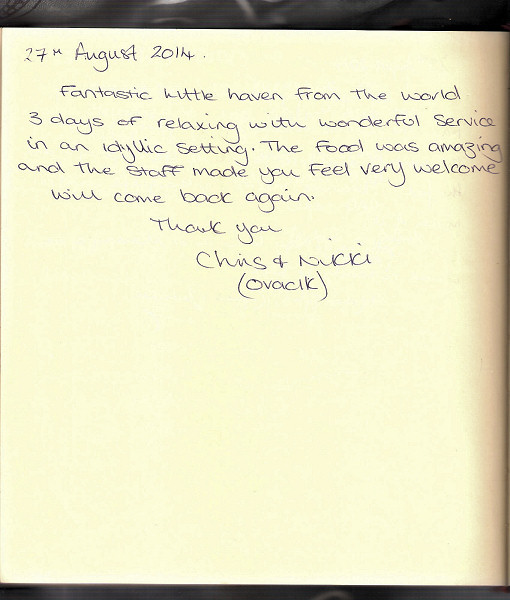 27th August 2014.
Fantastic little haven from the world
3 days of relaxing with wonderful service
in an idyllic setting. The food was amazing
and the staff made you feel very welcome
will come back again.
Thank you
Chris & Nikki
(Ovacik)